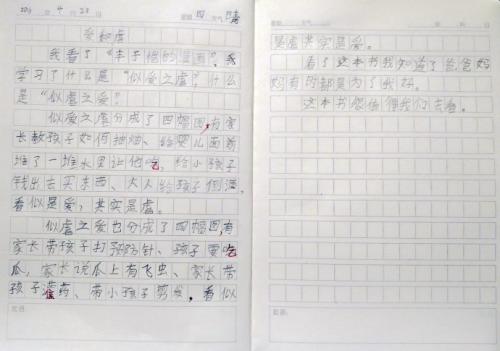 爱和虐
我看了“丰子恺的漫画”,我
学习了什么是“似爱之虐”,什么
是“似虐之爱”。
似爱之虐分成了四幅图,有家
长教孩子如何抽烟、给婴儿面前
堆了一堆水果让他吃,给小孩子
钱出去买东西、大人给孩子倒酒,
看似是爱,其实是虐。
似虐之爱也分成了四幅图,有
家长带孩子打预防针、孩子要吃
瓜,家长说瓜上有飞虫、家长带
孩子灌药、带小孩子剪发,看似
是虐其实是爱。
看了这本书我知道了爸爸妈
妈有的都是为了我好。
这本书很值得我们去看。